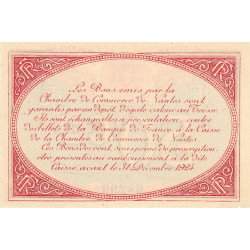 Les Bons émis par la
Chambre de Commerce de Nantes sont
garantis par un dépôt d'égale valeur au Trésor
Ils sont échangeables à présentation contre
des billets de la Banque de France à la Caisse
de la Chambre de Commerce de Nantes.
Ces Bons devront sous peine de prescription
être présentés au remboursement à la dite
Caisse avant le 31 Décembre 1924